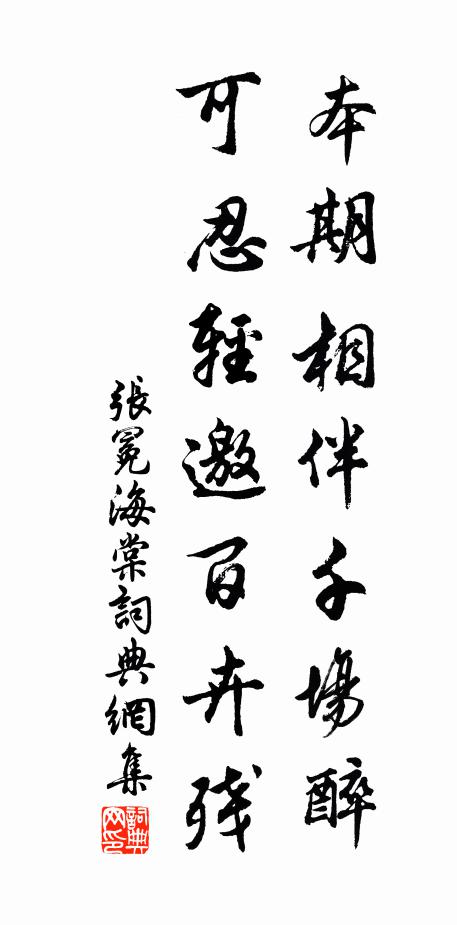 本期相伴千場醉
可忍輕邀百卉残
張冕海棠詞典網集
詞典网印